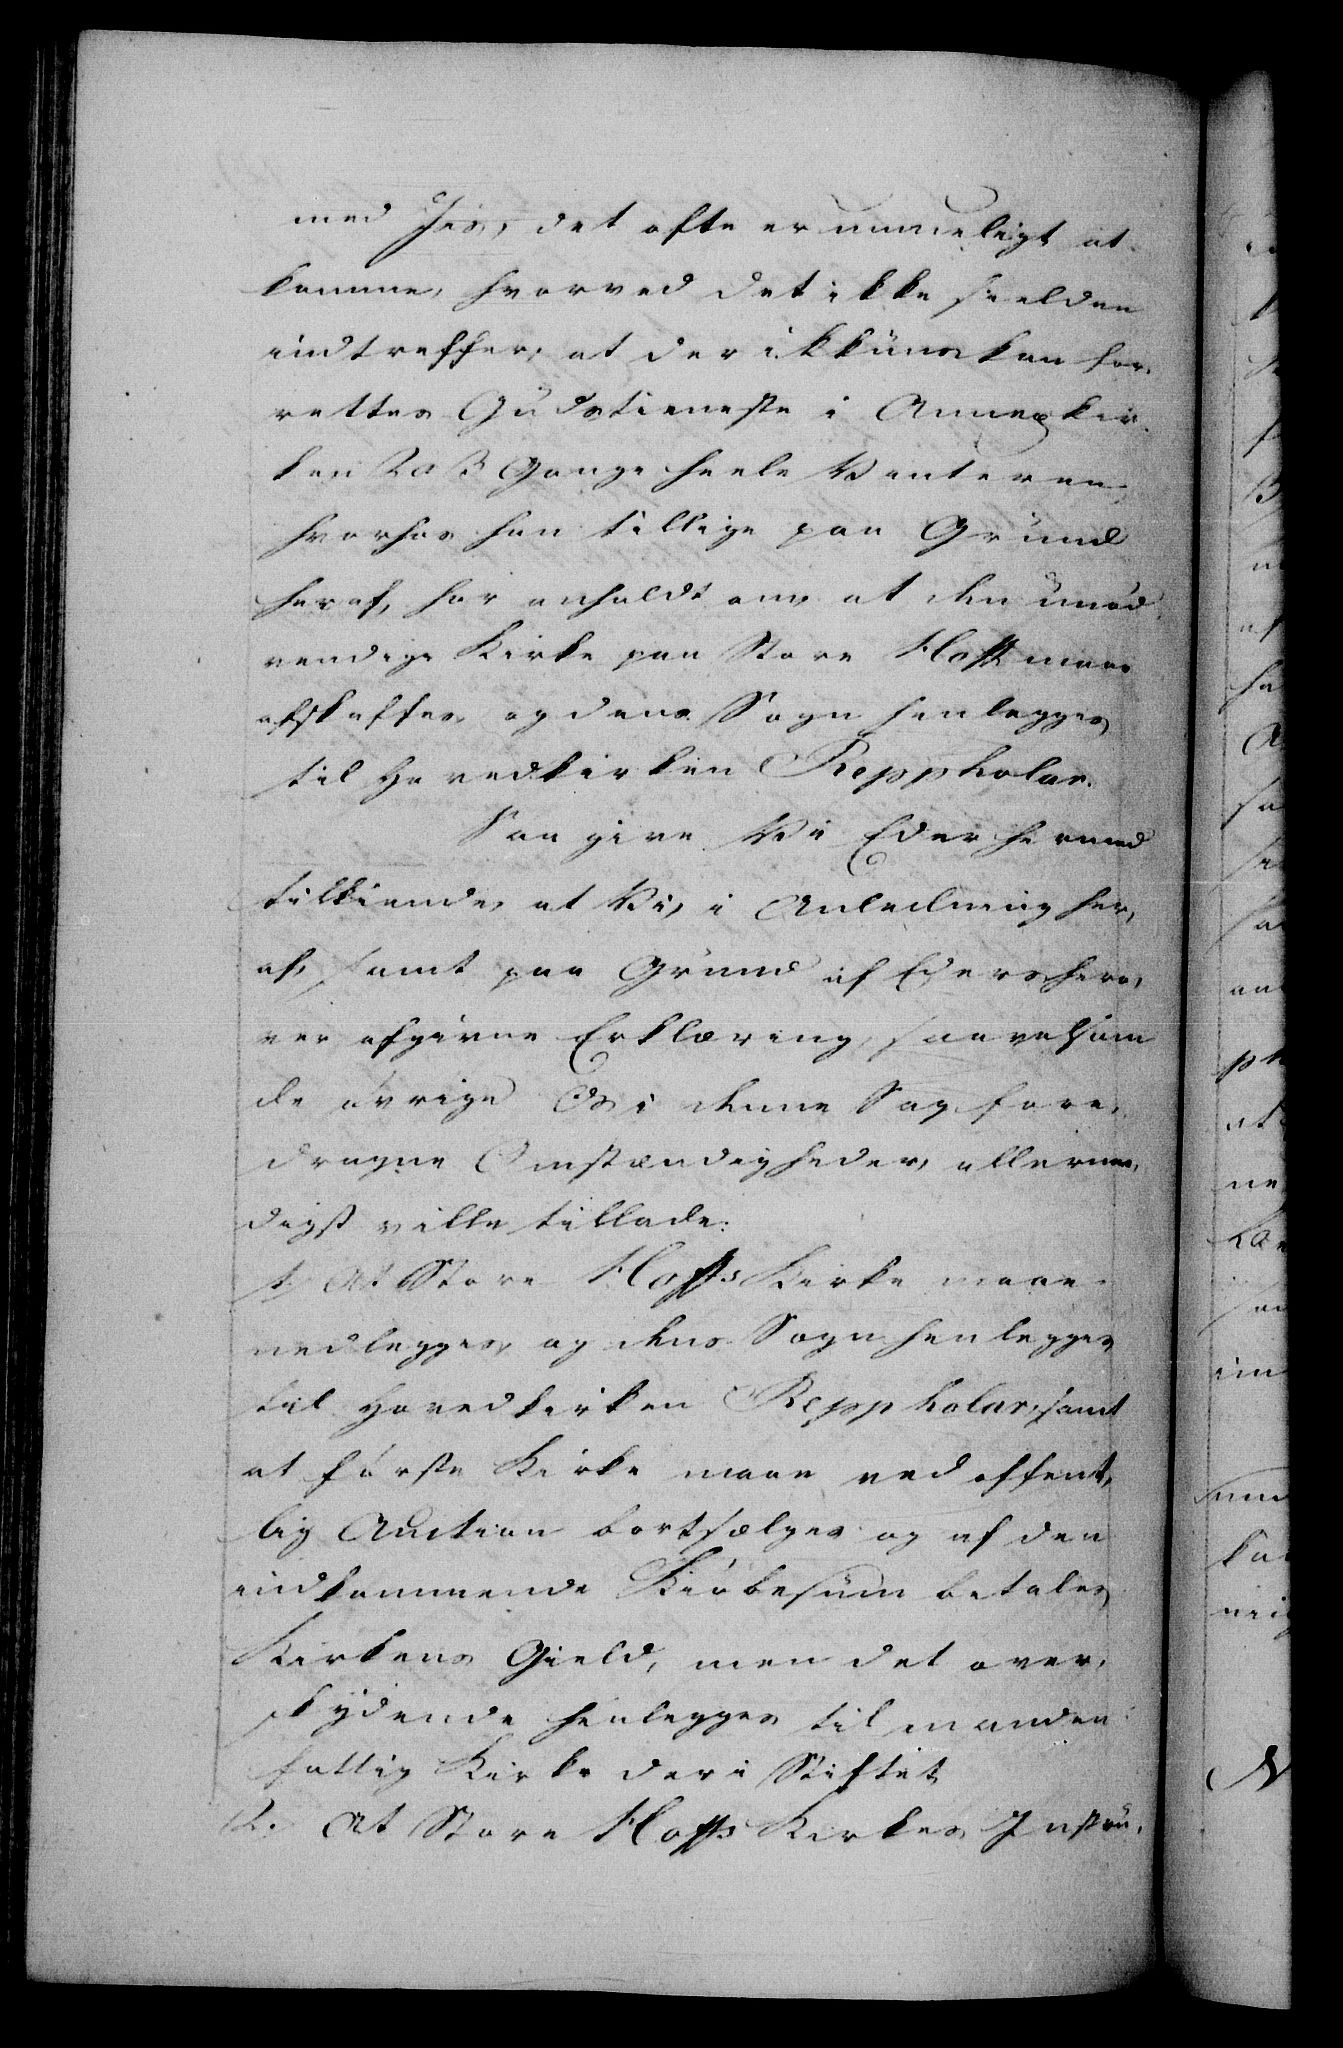 med Jis, det ofte er umueligt at
komme, hvorved det ikke sielden
indtreffer, at der ikkuns kan for,
rettes Gudstieneste i Annexkir,
ken 2 a 3 Gange heele Vinteren,
hvorhos han tillige paa Grund
heraf, har anholdt om, at den unød,
vendige Kirke paa Store Hoff maae
afskaffes og dens Sogn henlegges
til Hovedkirken Reppholar.
Saa give Vi Eder hermed
tilkiende, at Vi, i Anledning her,
af, samt paa Grund af Eders her,
over afgivne Erklæring, saavelsom
de øvrige Os i denne Sag fore,
dragne Omstændigheder, allernaa,
digst ville tillade:
1. At Store Hoffs Kirke maae
nedlegges, og dens Sogn henlegges
til Hovedkirken Reppholar, samt
at første Kirke maae ved offent,
lig Auction bortsælges og af den
indkommende Kiøbesum betales
Kirkens Gield, men det over,
skydende henlegges til en anden
fattig Kirke der i Stiftet
2. At Store Hoffs Kirkes Instru,